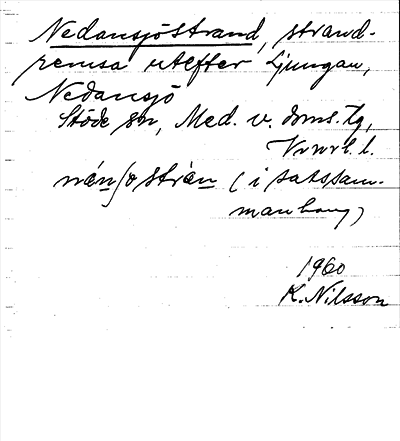 Nedansjöstrand, strand-
remsa utefter Ljungan,
Nedansjö
Stöde sn, Med. v. doms. tg,
Vnorrl. l.
(i satssam-
manhang)
1960
K. Nilsson